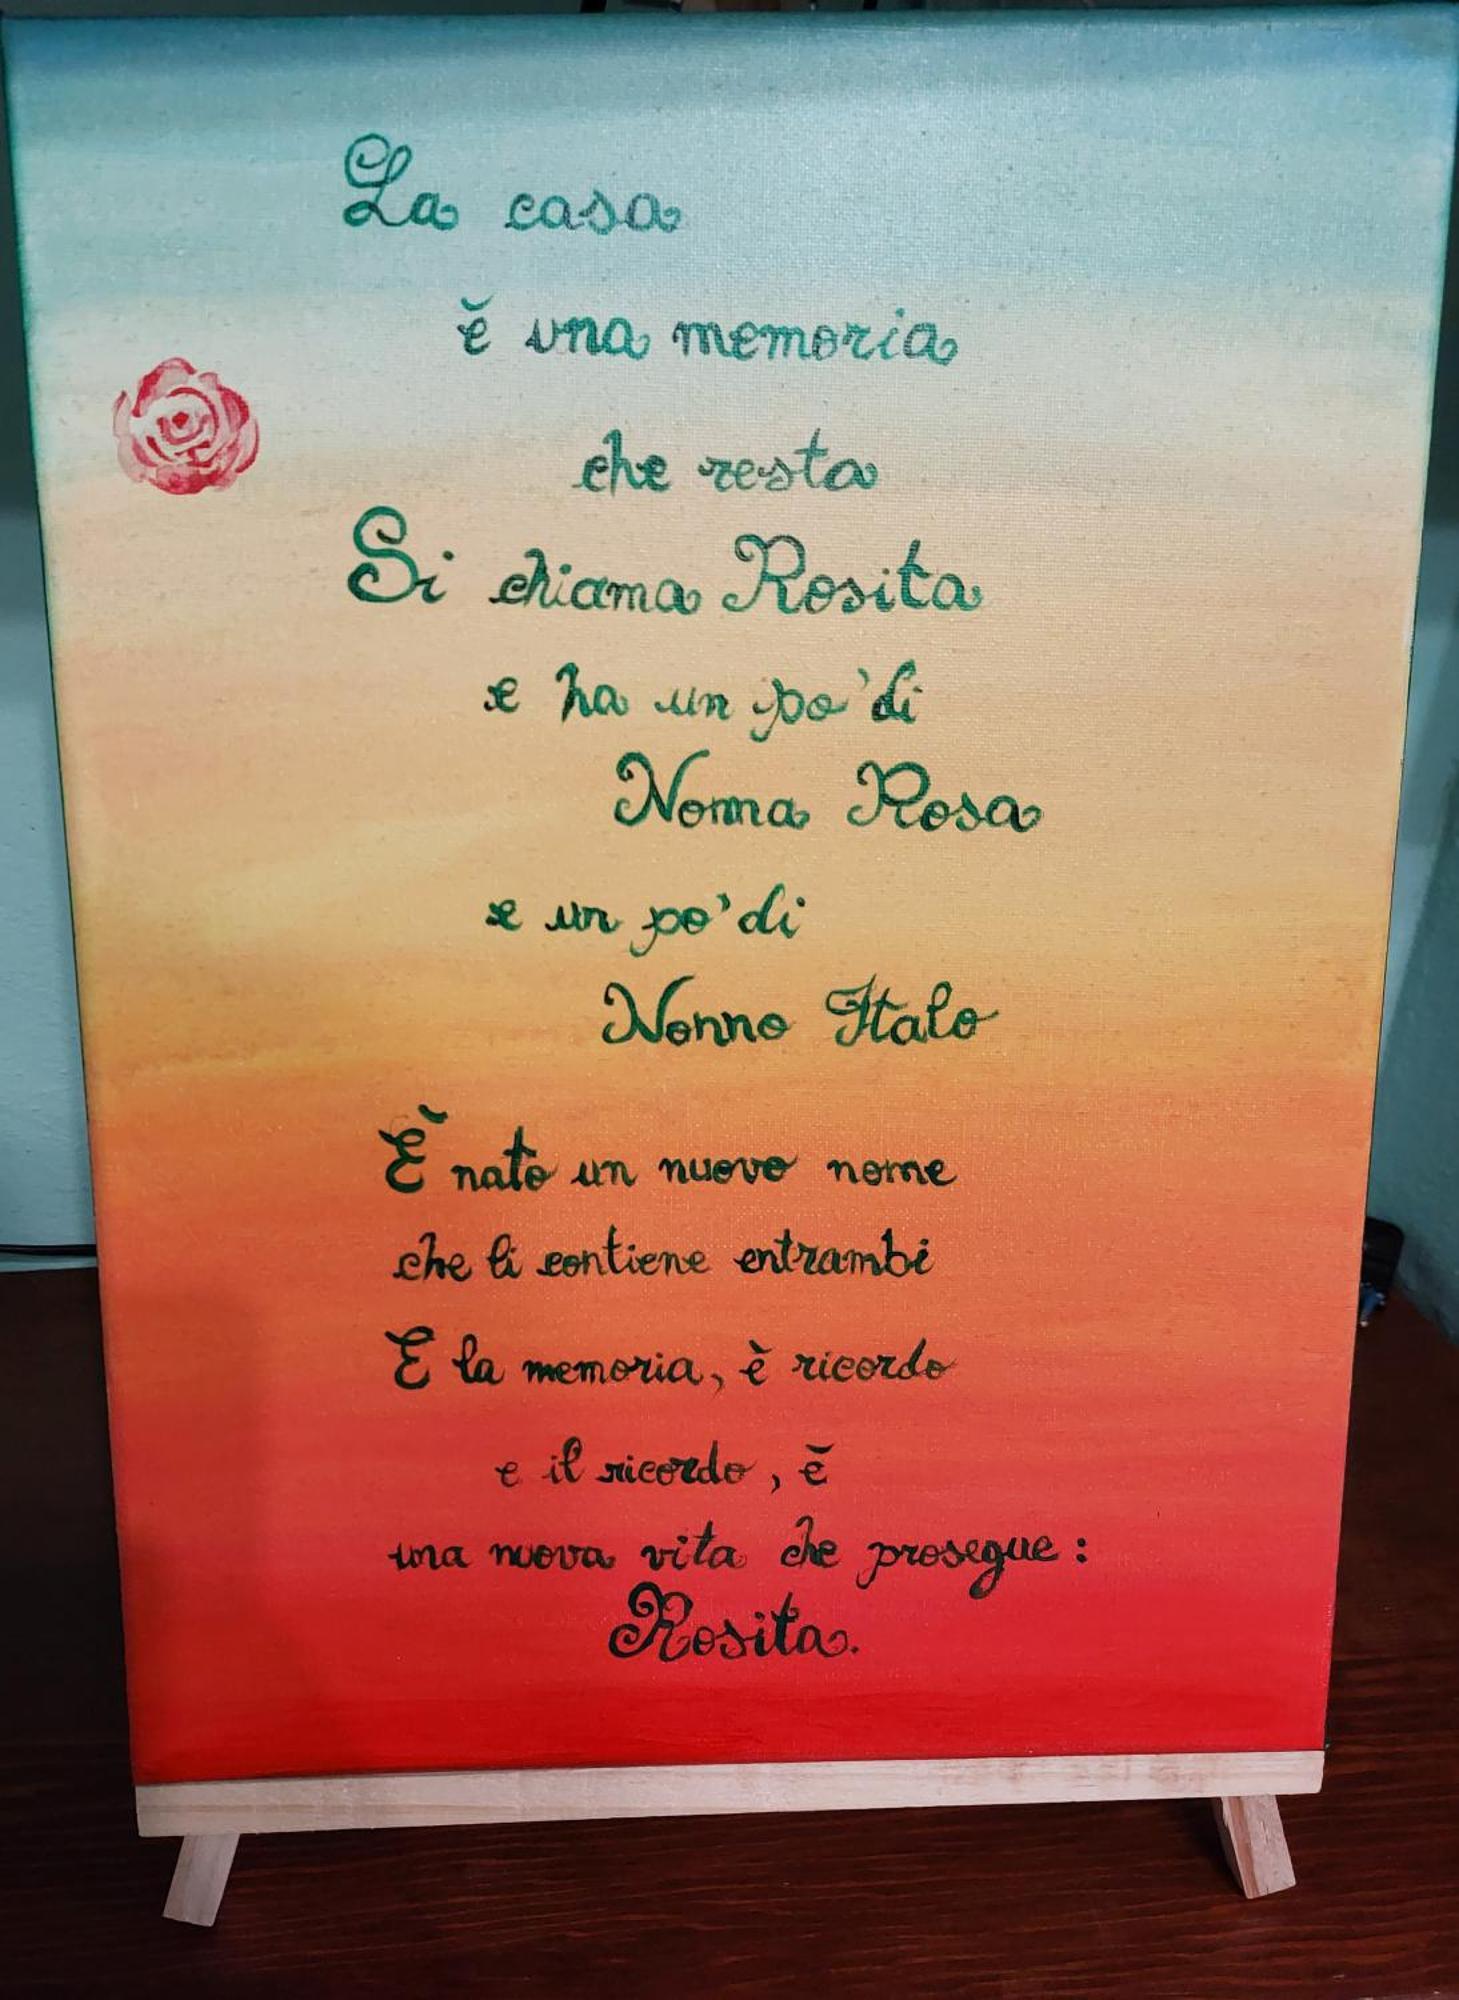 La casa
è una memoria
che resta
Si chiama Rosita
e ha un po' di
Nonna Rosa
e un po' di
Nonno Italo
È nato un nuovo nome
che li contiene entrambi
E la memoria, è ricordo
e il ricordo, è
una nuova vita che prosegue:
Rosita.